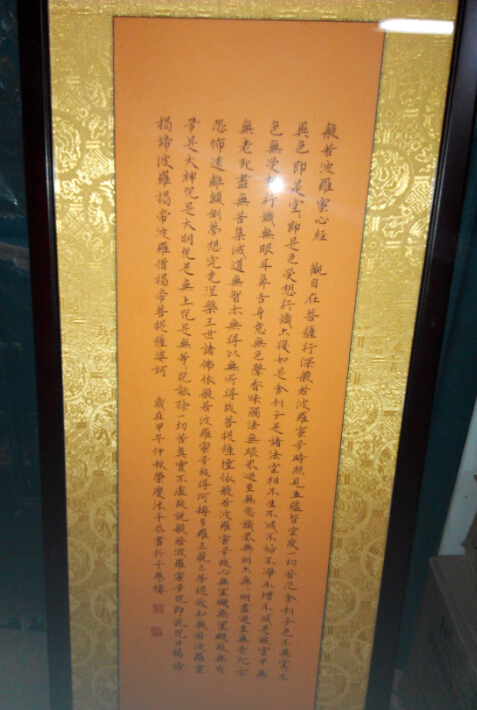 般若波羅蜜心經 觀自在菩薩行深般若波羅蜜多時照見五蘊皆空度一切苦厄舍利子色不異空不
異色即是空空即是色受想行識亦復如是舍利子是諸法空相不生不滅不垢不淨不增不減是故空中無
色無受想行識無眼耳鼻舌身意無色聲香味觸法無眼界乃至無意識界無無明亦無無明盡乃至無老死亦
無老死盡無苦集滅道無智亦無得以無所得故菩提薩埵依般若波羅蜜多故心無罣礙無罣礙故無有
恐怖遠離顛倒夢想究竟涅槃三世諸佛依般若波羅蜜多故得阿耨多羅三藐三菩提故知般若波羅蜜
多是大神咒是大明咒是無上咒是無等咒能除一切苦真實不虛故說般若波羅蜜多咒即說咒曰揭諦
揭諦波羅揭帝波羅僧揭帝菩提薩婆訶 歲在甲午仲秋榮慶沐手恭書於千卷樓